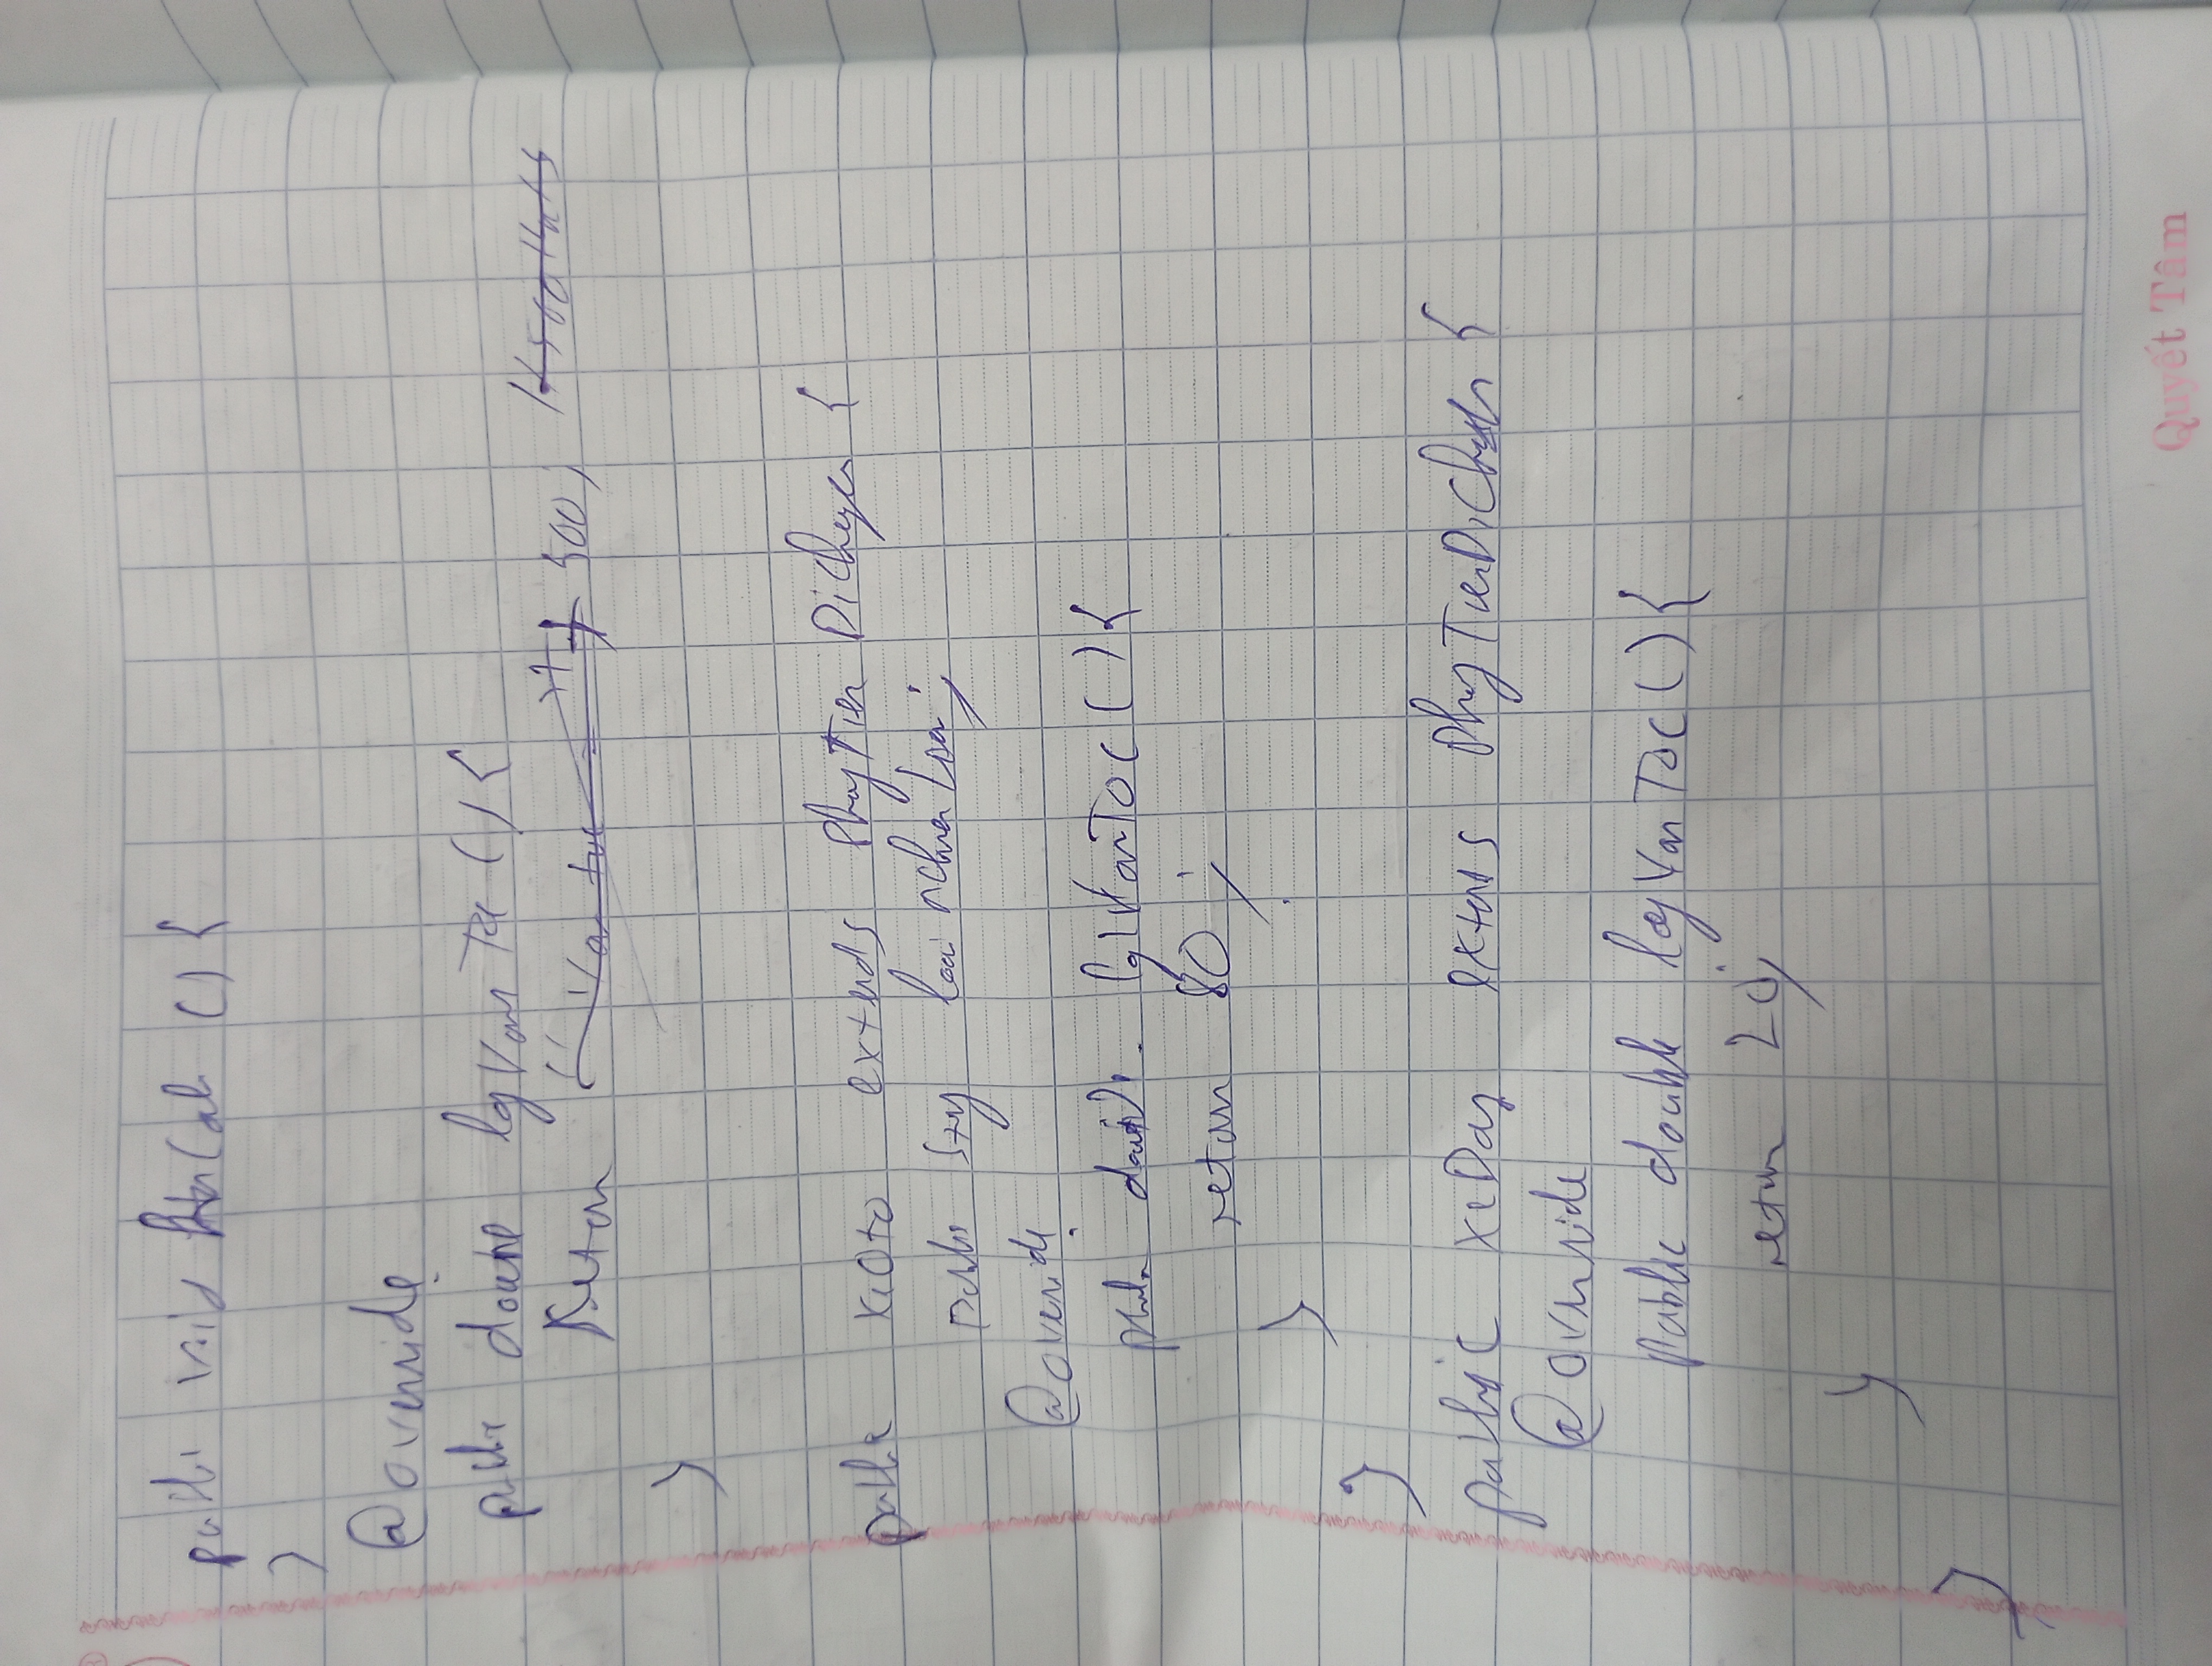 public void () {
}
@override
public double layVanToc () {
Return 500;
}
public xeOto extends PhuongTienDiChuyen {
public String loaiNhienLieu;
@override
public double layVanToc () {
return 80;
}
}
public xeDap extends PhuongTienDiChuyen {
@override
public double layVanToc () {
return 20;
}
}
Quyết Tâm